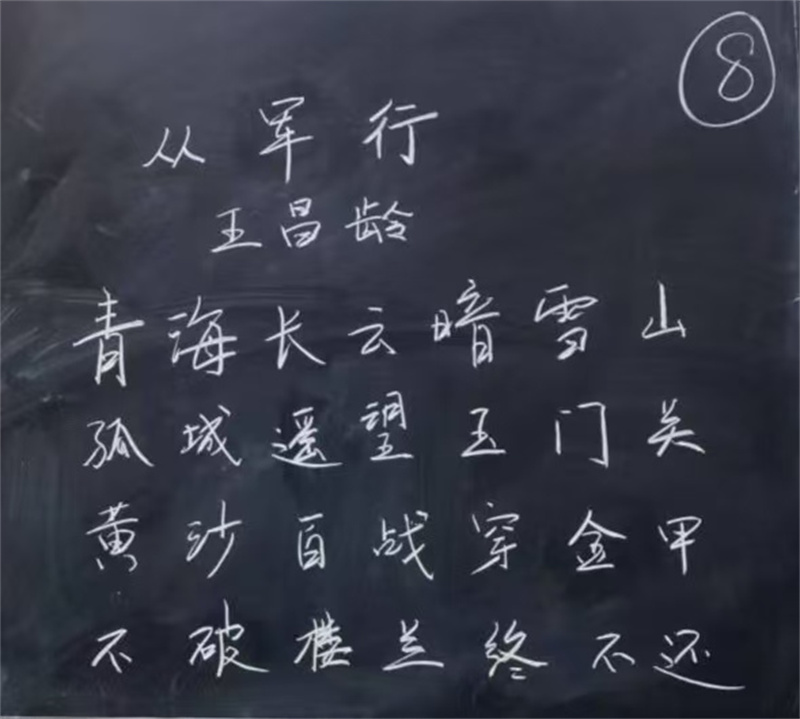 8
从军行
王昌龄
青海长云暗雪山
孤城遥望玉门关
黄沙百战穿金甲
不破楼兰终不还